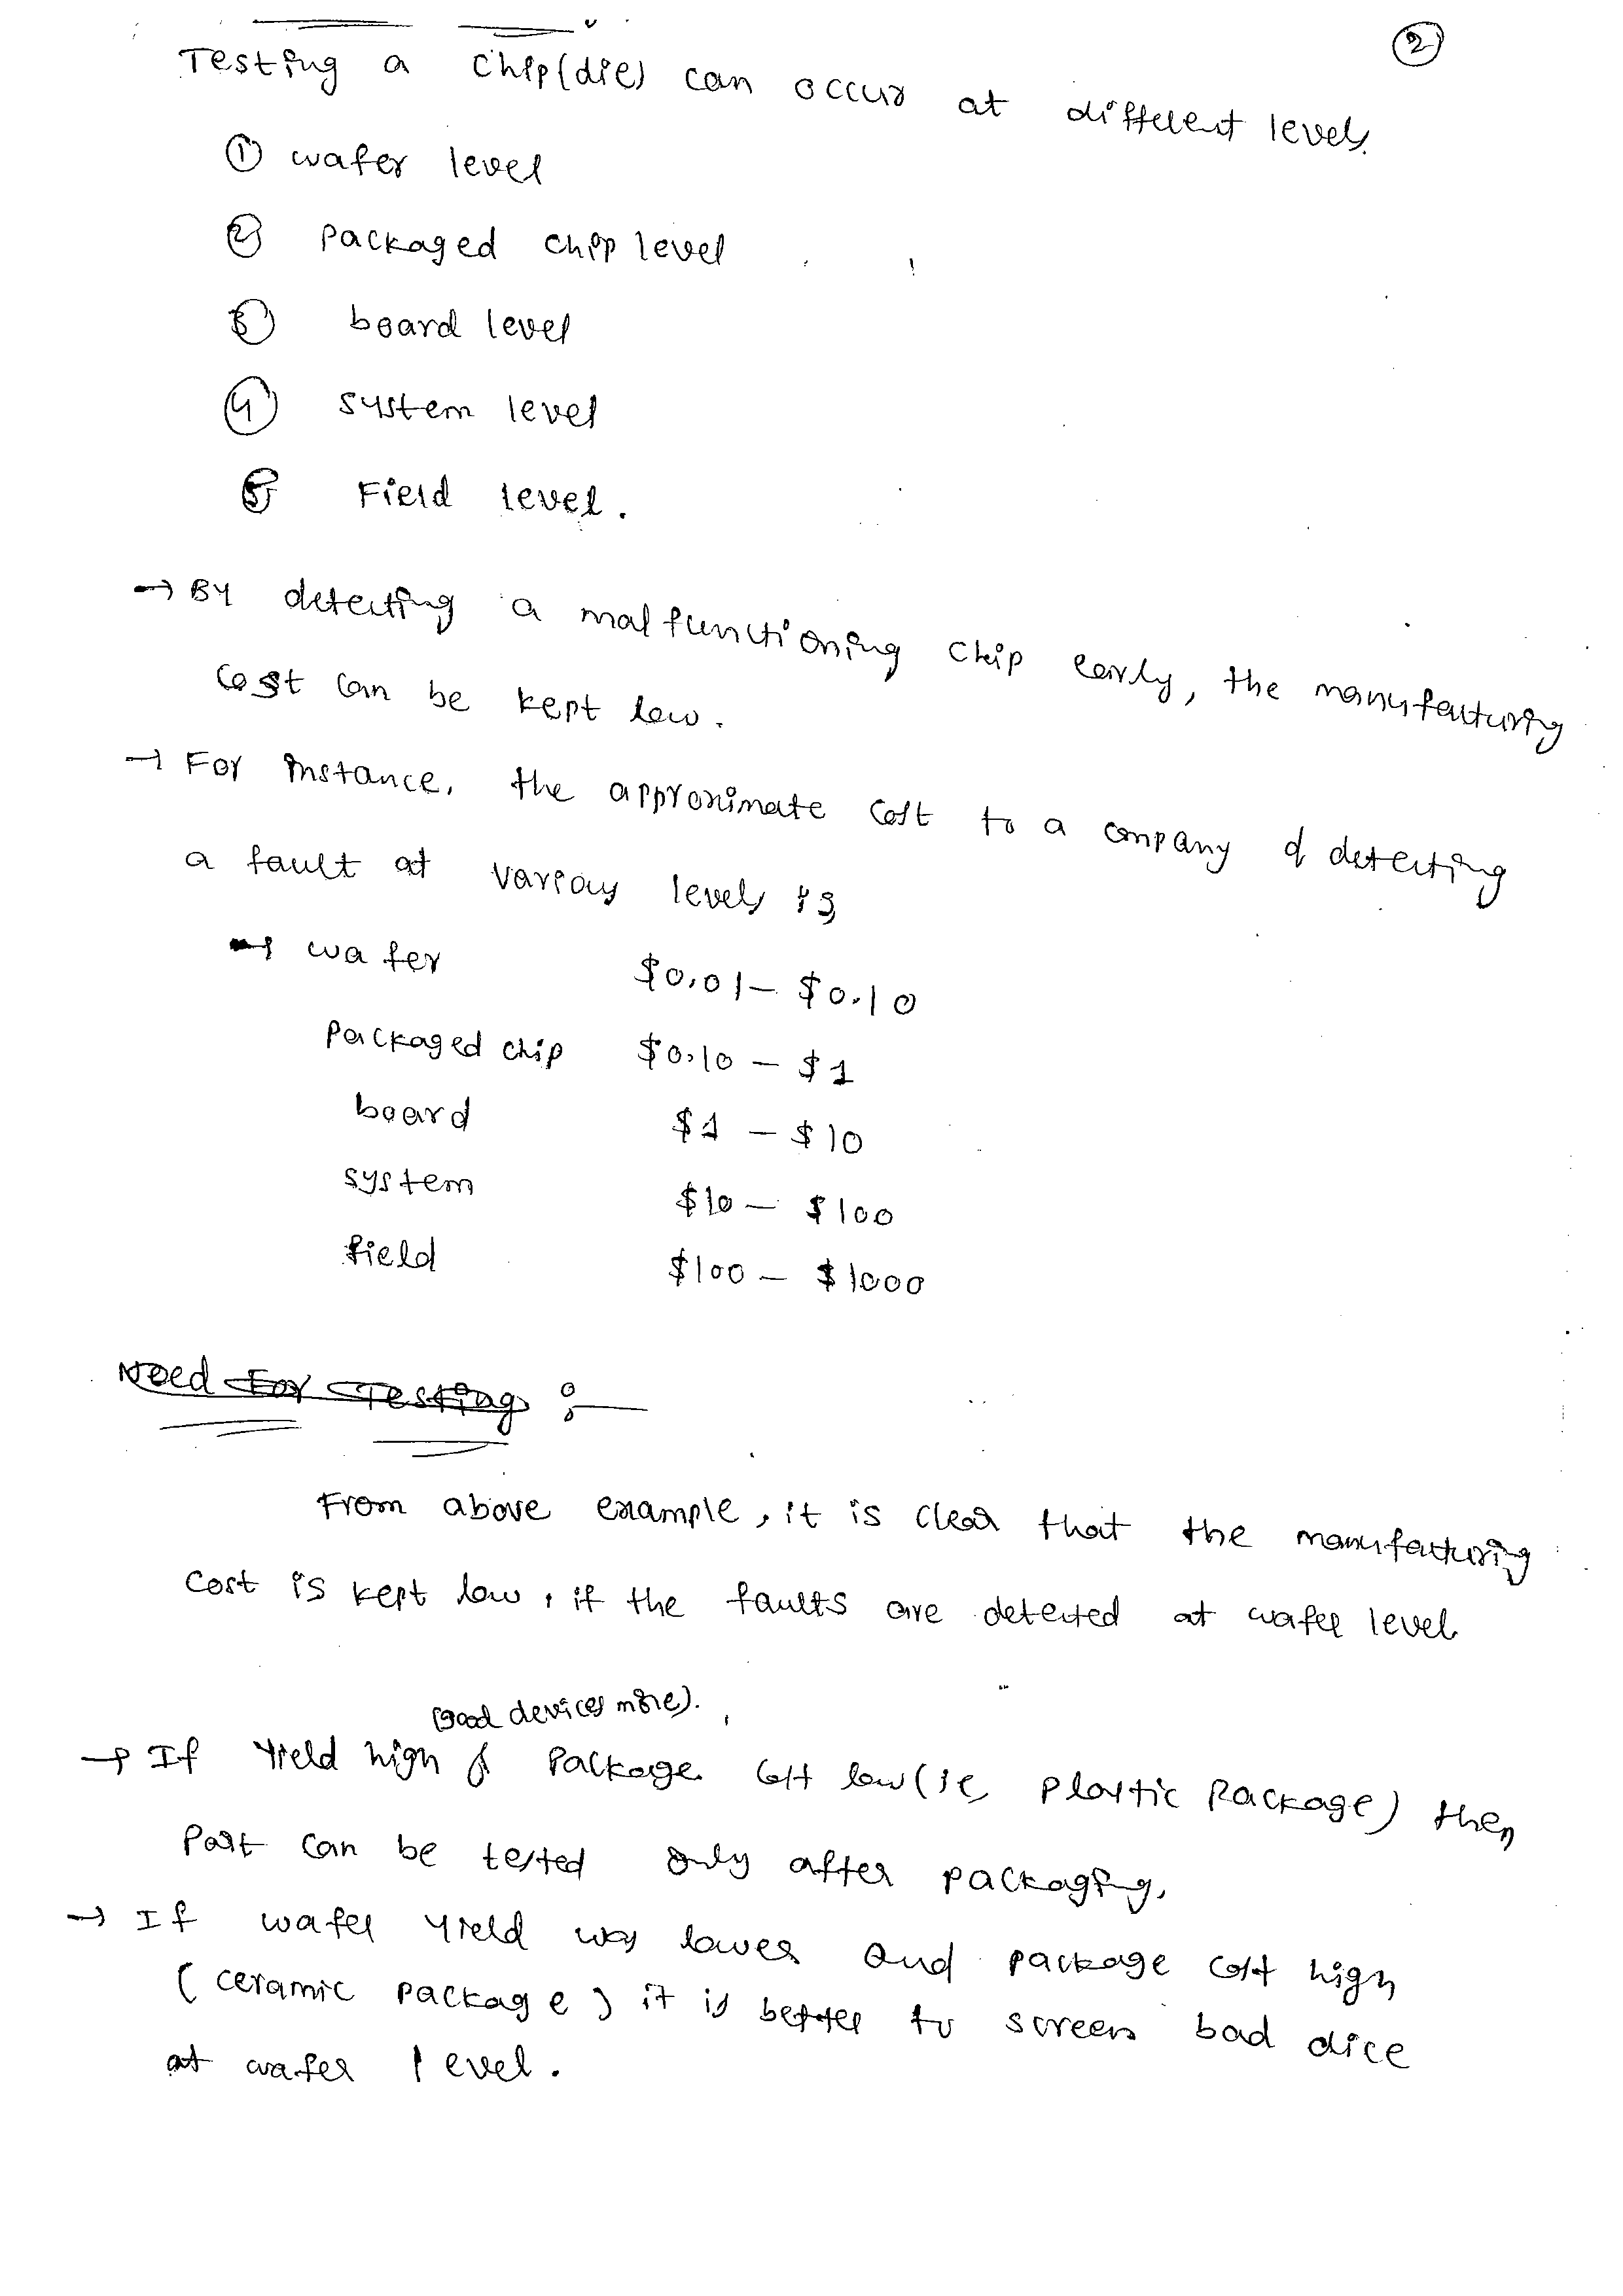 ②
Testing a chip(die) can occur at different levels.
① wafer level
② packaged chip level
③ board level
④ system level
⑤ Field level.
→ By detecting a malfunctioning chip early, the manufacturing
cost can be kept low.
→ For instance, the approximate cost to a company of detecting
a fault at various levels is
→ wafer $0.01 – $0.10
packaged chip $0.10 – $1
board $1 – $10
system $10 – $100
field $100 – $1000
Need For Testing :—
From above example, it is clear that the manufacturing
cost is kept low, if the faults are detected at wafer level
(good devices more).
→ If Yield high & Package cost low (ie, plastic Package) then
Part can be tested only after packaging.
→ If wafer yield was lower and package cost high
(ceramic package) it is better to screen bad dice
at wafer level.